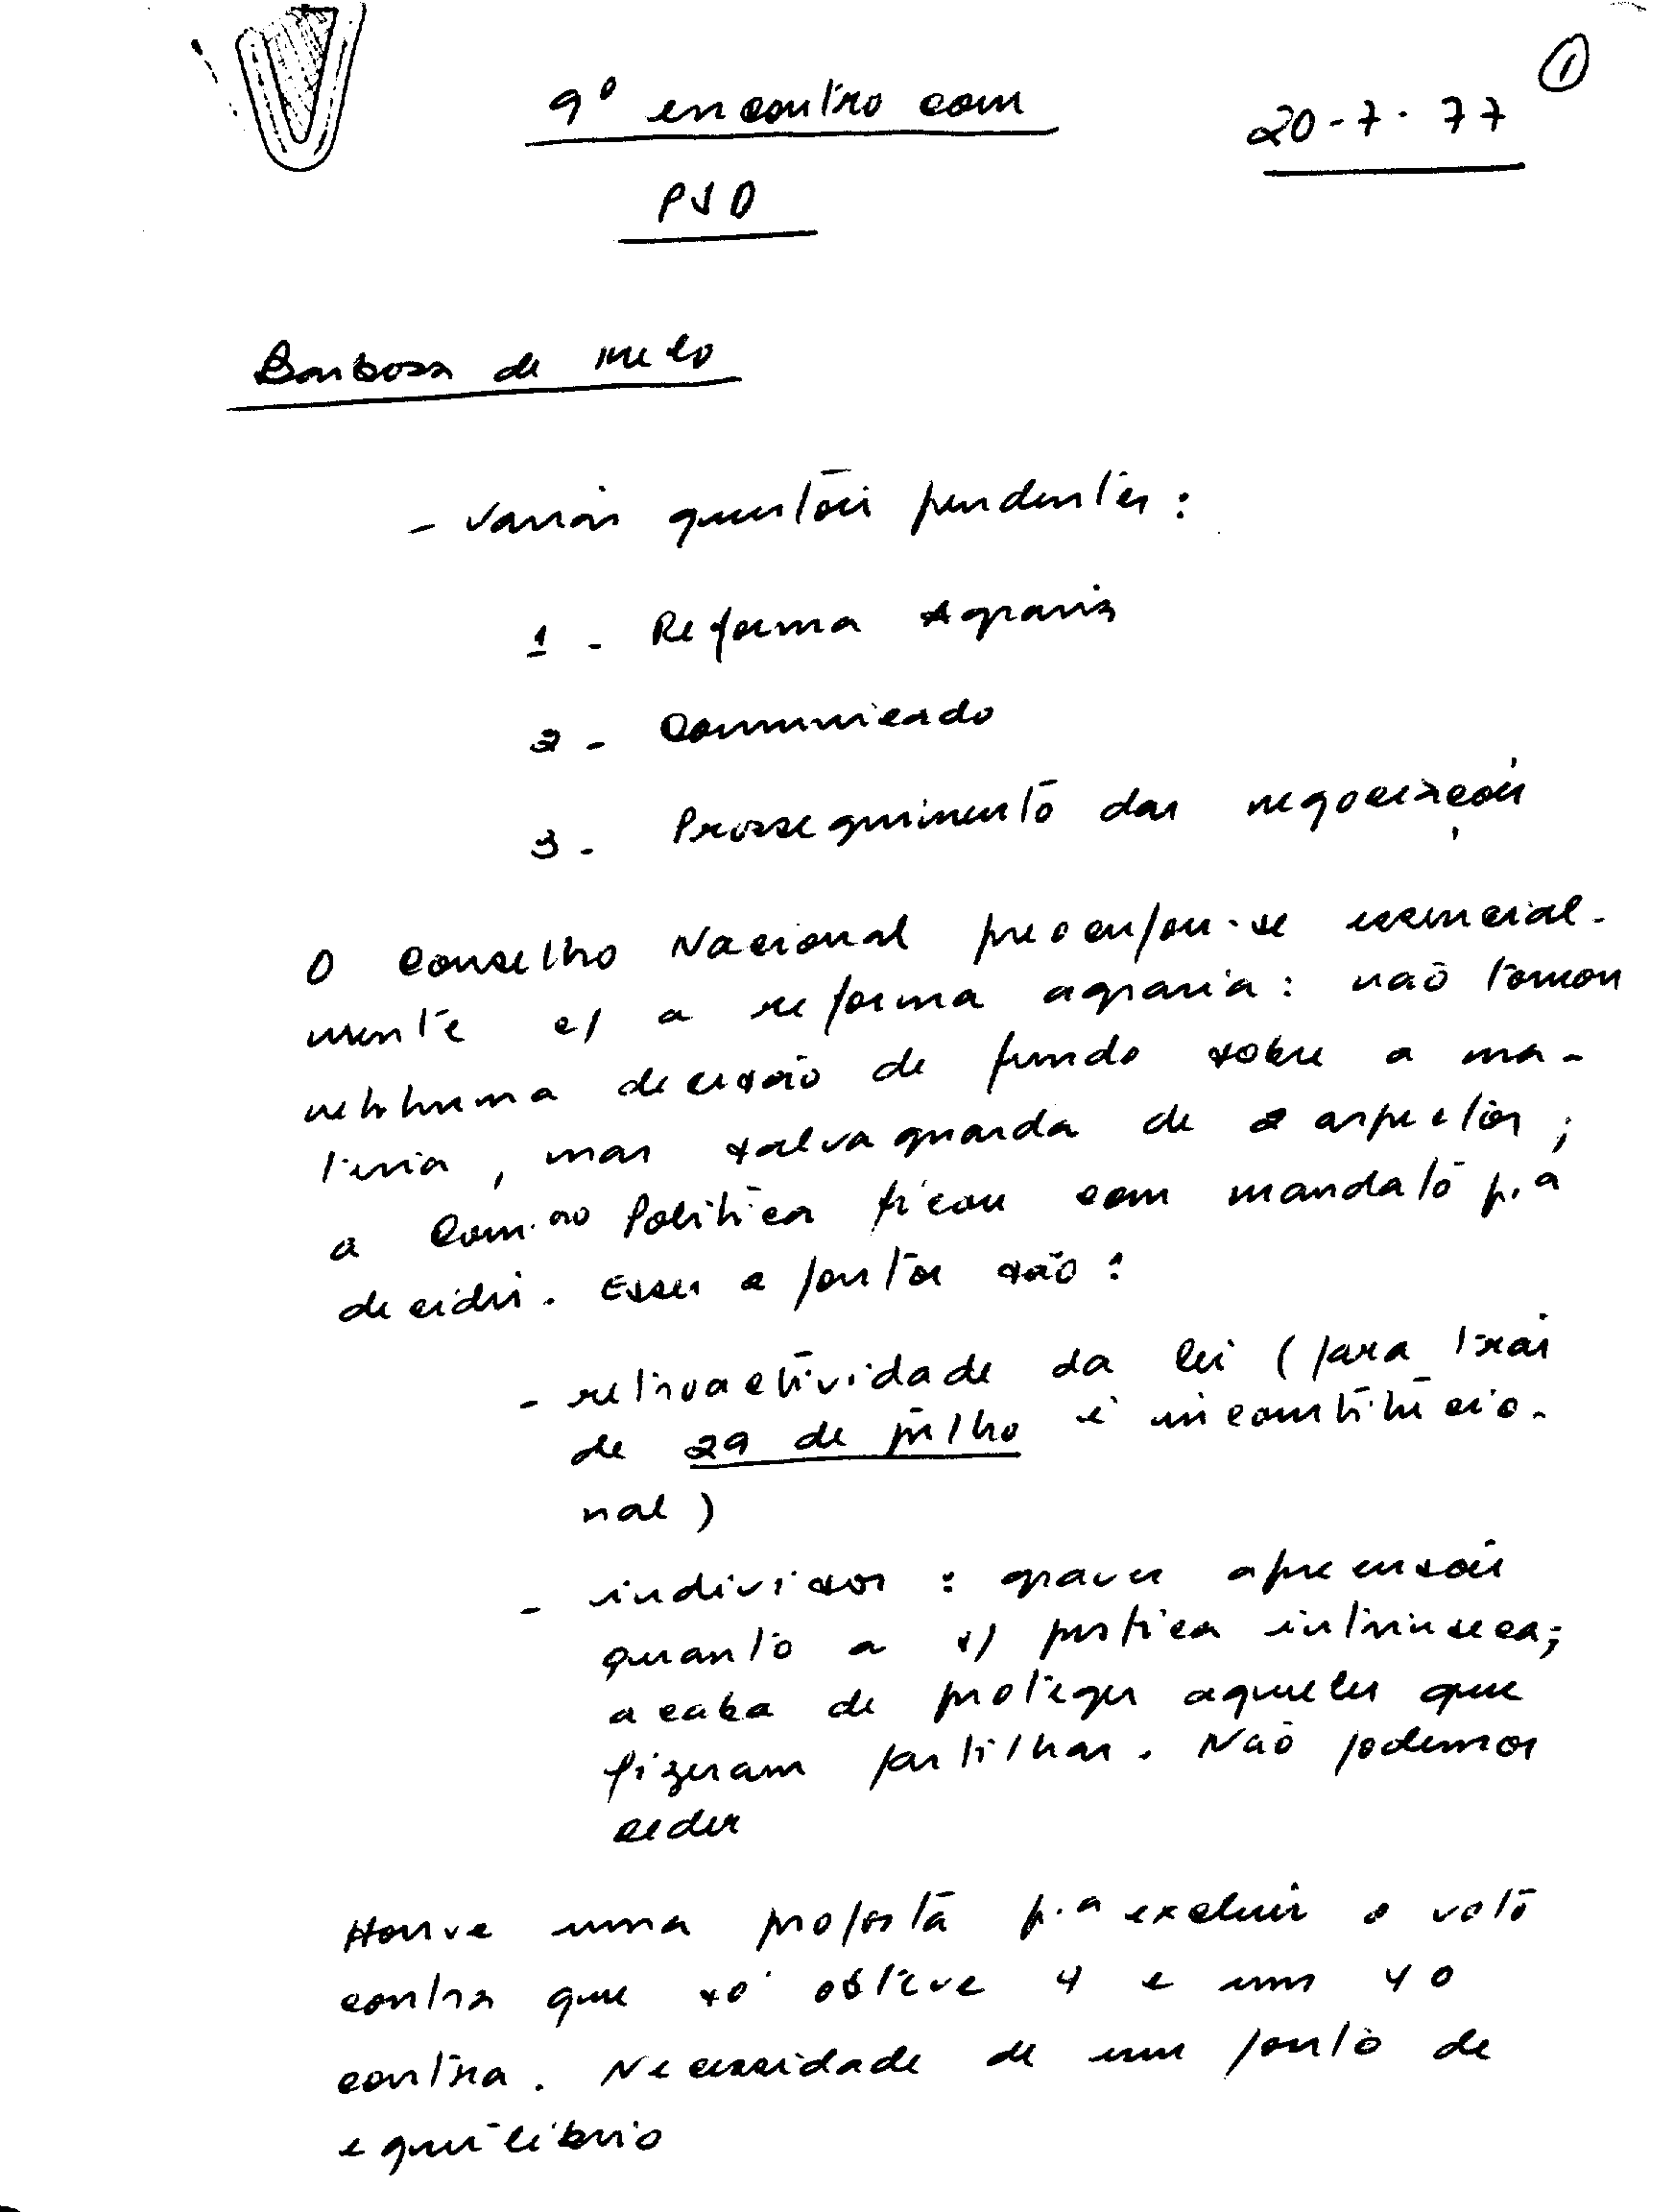 ①
9º encontro com
20-7-77
PSD
Barbosa de Melo
- Varias questões pendentes:
1 - Reforma Agraria
2 - Comunicado
3 - Prosseguimento das negociações
O Conselho Nacional preocupou-se essencial-
mente c/ a reforma agraria: não tomou
nenhuma decisão de fundo sobre a ma-
teria, mas salvaguarda de 2 aspectos;
a Com.ão Politica ficou com mandato p.a
decidir. Esses 2 pontos são:
- retroactividade da lei (para trás
de 29 de julho é inconstitucio-
nal)
- indivisos: graves apreensões
quanto a s/ justiça intrinseca;
acaba de proteger aqueles que
fizeram partilhas. Não podemos
ceder
Houve uma proposta p.a excluir o voto
contra que só obteve 4 e uns 40
contra. Necessidade de um ponto de
equilibrio